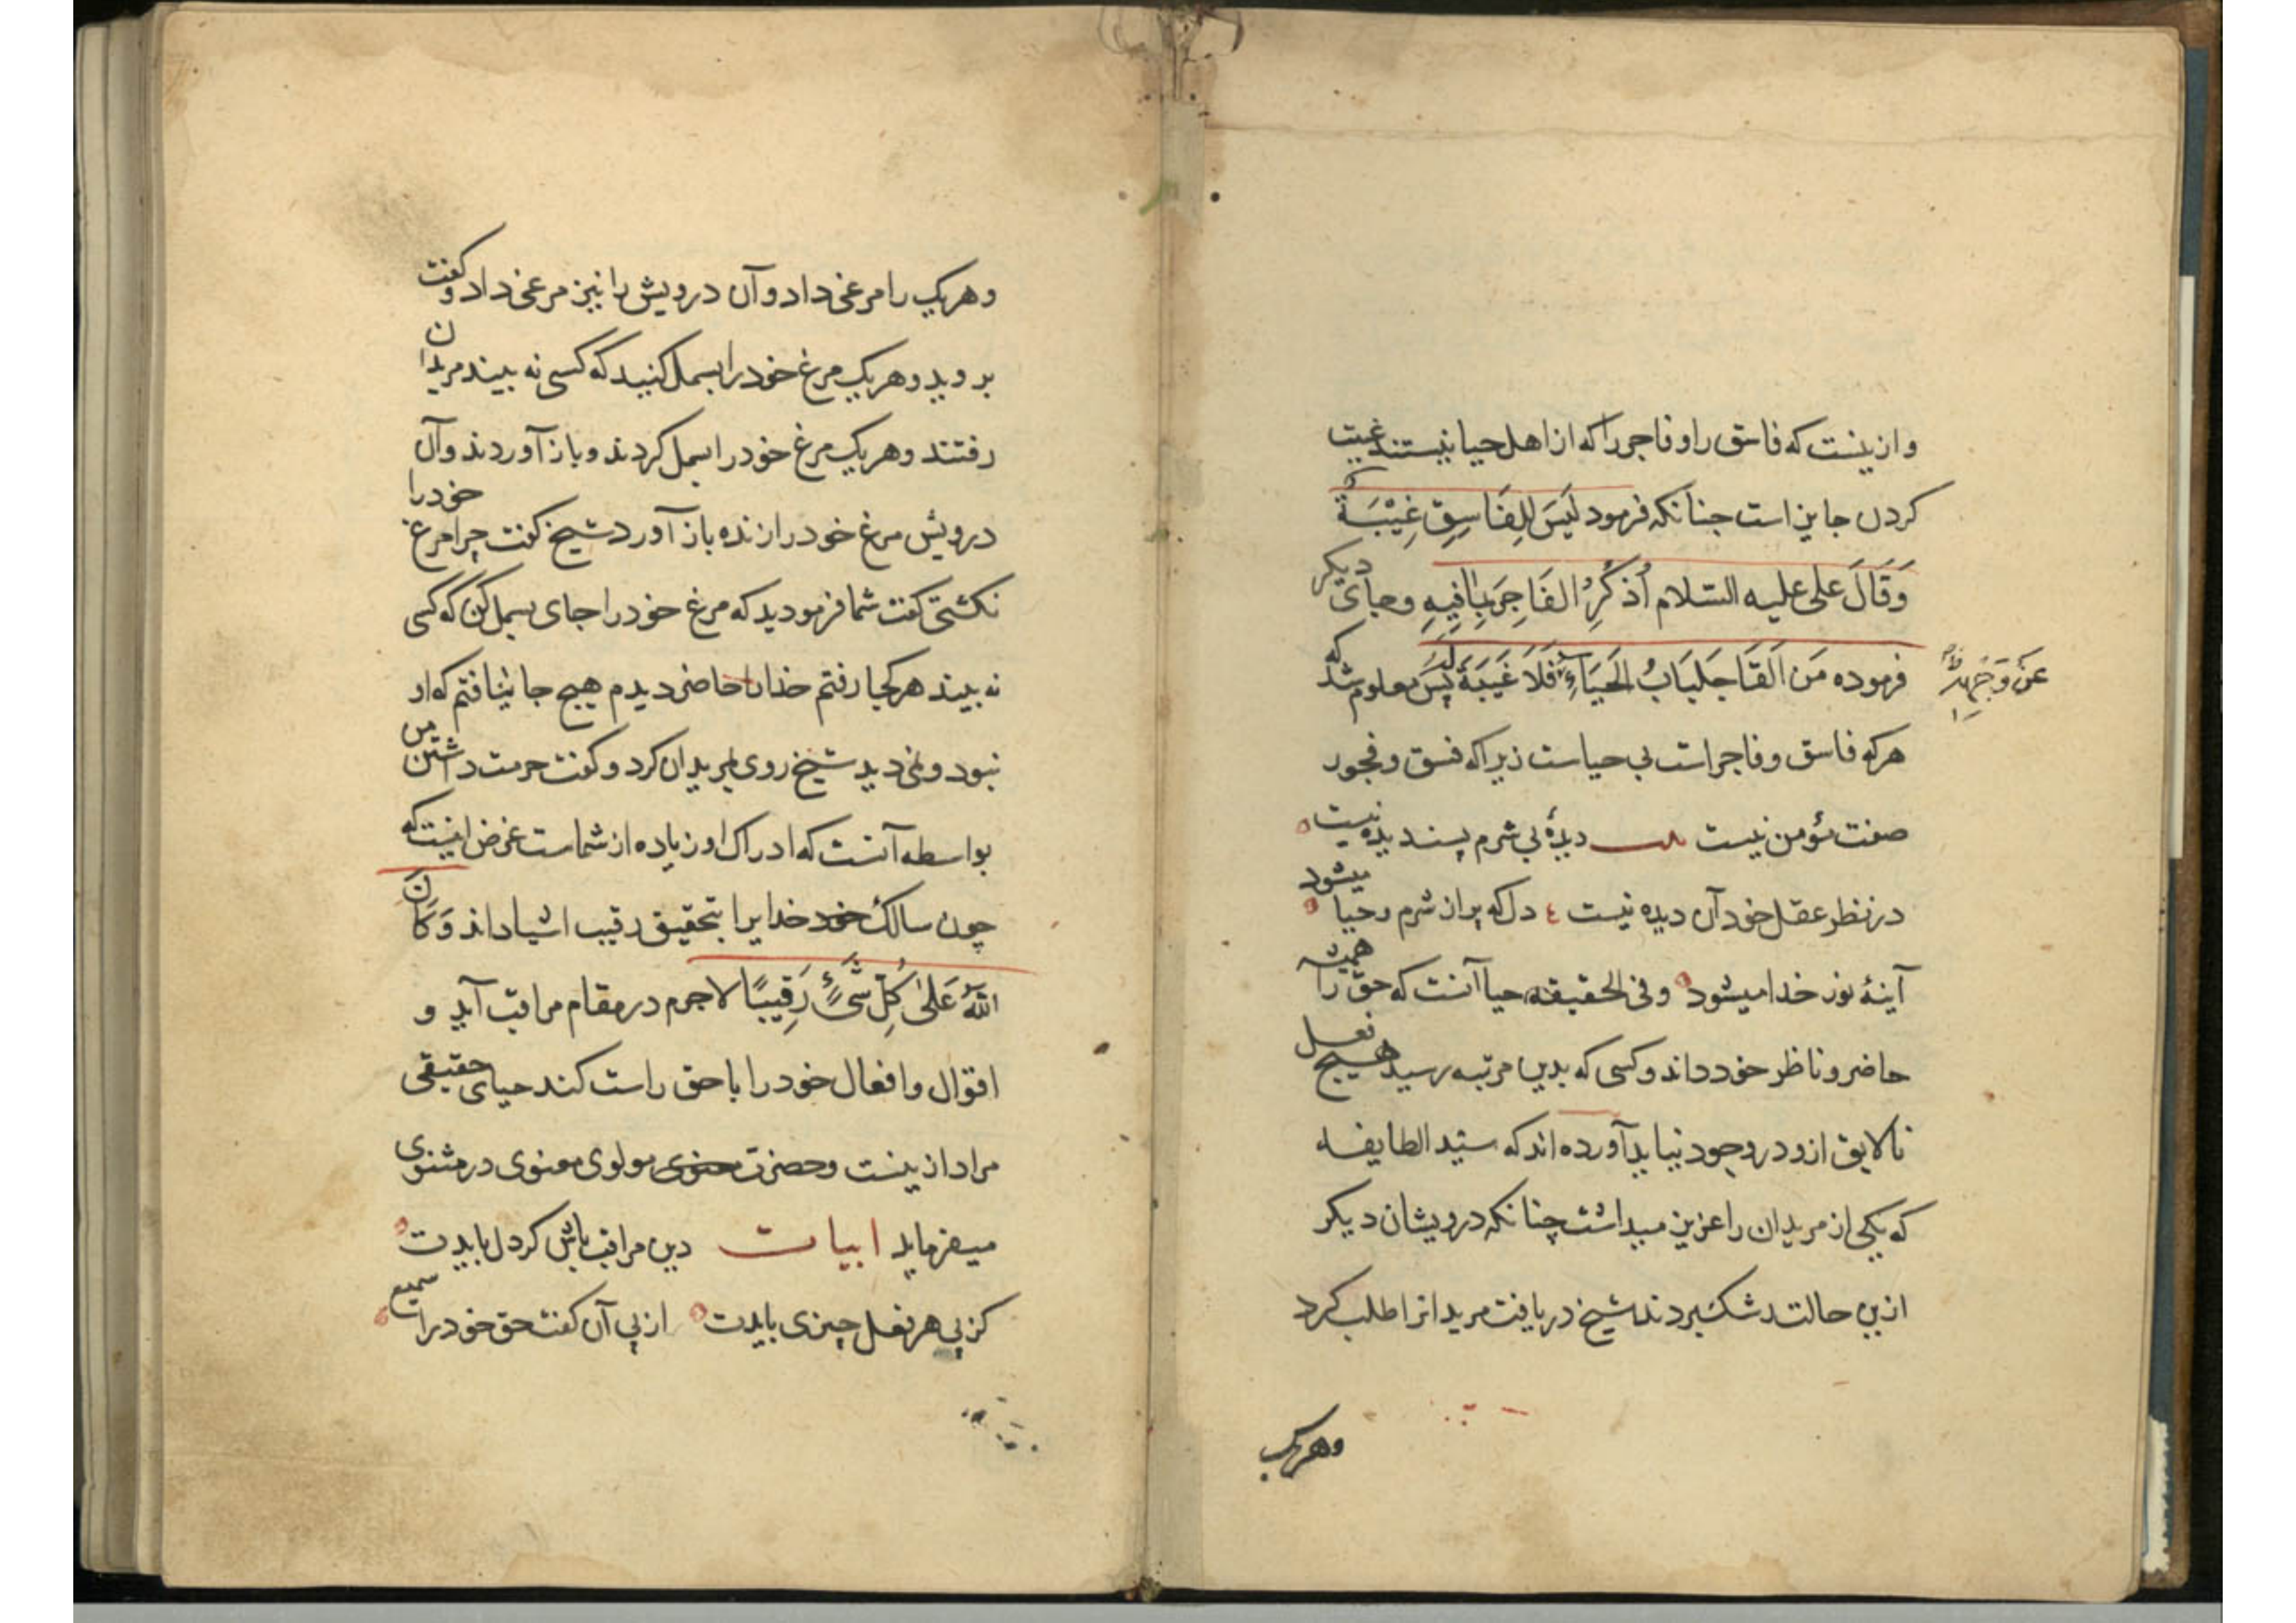 وازینست که فاسق را و فاجر را که از اهل حیا نیستند غیبت
کردن جایز است جنانکه فرمود لَیسَ لِلفَاسِقِ غِیْبَةٌ
وَقَالَ علی علیه السّلام أُذکُرِ الفَاجِرَ بِمَافِیهِ و جای دیکر
فرموده مَن اَلقَا جَلبَابُ الحَیَاءِ فَلَا غَیبَةَ لَهُ پس معلوم شد که
عَن وَجهِهِ
هرکه فاسق و فاجر است بی حیاست زیراکه فسق و فجور
صفت مؤمن نیست دیدهٔ بی شرم پسندیده نیست
در نظر عقل خود آن دیده نیست ع دل که پر از شرم و حیا میشود
آینهٔ نور خدا میشود وفی الحقیقه حیا آنست که حق را همیشه
حاضر و ناظر خود داند و کسی که بدین مرتبه رسید هیچ فعل
نالایق ازو در وجود نیاید آورده اند که سیّد الطایفه
که یکی از مریدان را عزیز میداشت چنانکه درویشان دیکر
ازین حالت رشک بردند شیخ دریافت مریدانرا طلب کرد
وهریک
وهریک را مرغی داد و آن درویش را نیز مرغی داد و کفت
بروید و هریک مرغ خود را بسمل کنید که کسی نه بیند مریدان
رفتند و هریک مرغ خود را بسمل کردند و باز آوردند و آن
درویش مرغ خود را زنده باز آورد شیخ کفت چرا مرغ خود را
نکشتی کفت شما فرمودید که مرغ خود را جای بسمل کن که کسی
نه بیند هرکجا رفتم خدا را حاضر دیدم هیچ جا نیافتم که او
نبود و نمی دید شیخ روی بمریدان کرد و کفت حرمت داشتن من
بواسطه آنست که ادراک او زیاده از شماست غرض اینست که
چون سالک خود خدایرا بتحقیق رقیب اشیا داند وَکَانَ
اللّهُ عَلَیٰ کُلِّ شَیٍٔ رَقِیبًا لاجرم در مقام مراقبت آید و
اقوال و افعال خود را با حق راست کند حیای حقیقی
مراد ازینست و حضرت معنوی مولوی معنوی در مثنوی
میفرماید ابیات دین مراقب باش کر دل بایدت
کزپی هر فعل چیزی بایدت از پی آن کفت حق خود را سمیع